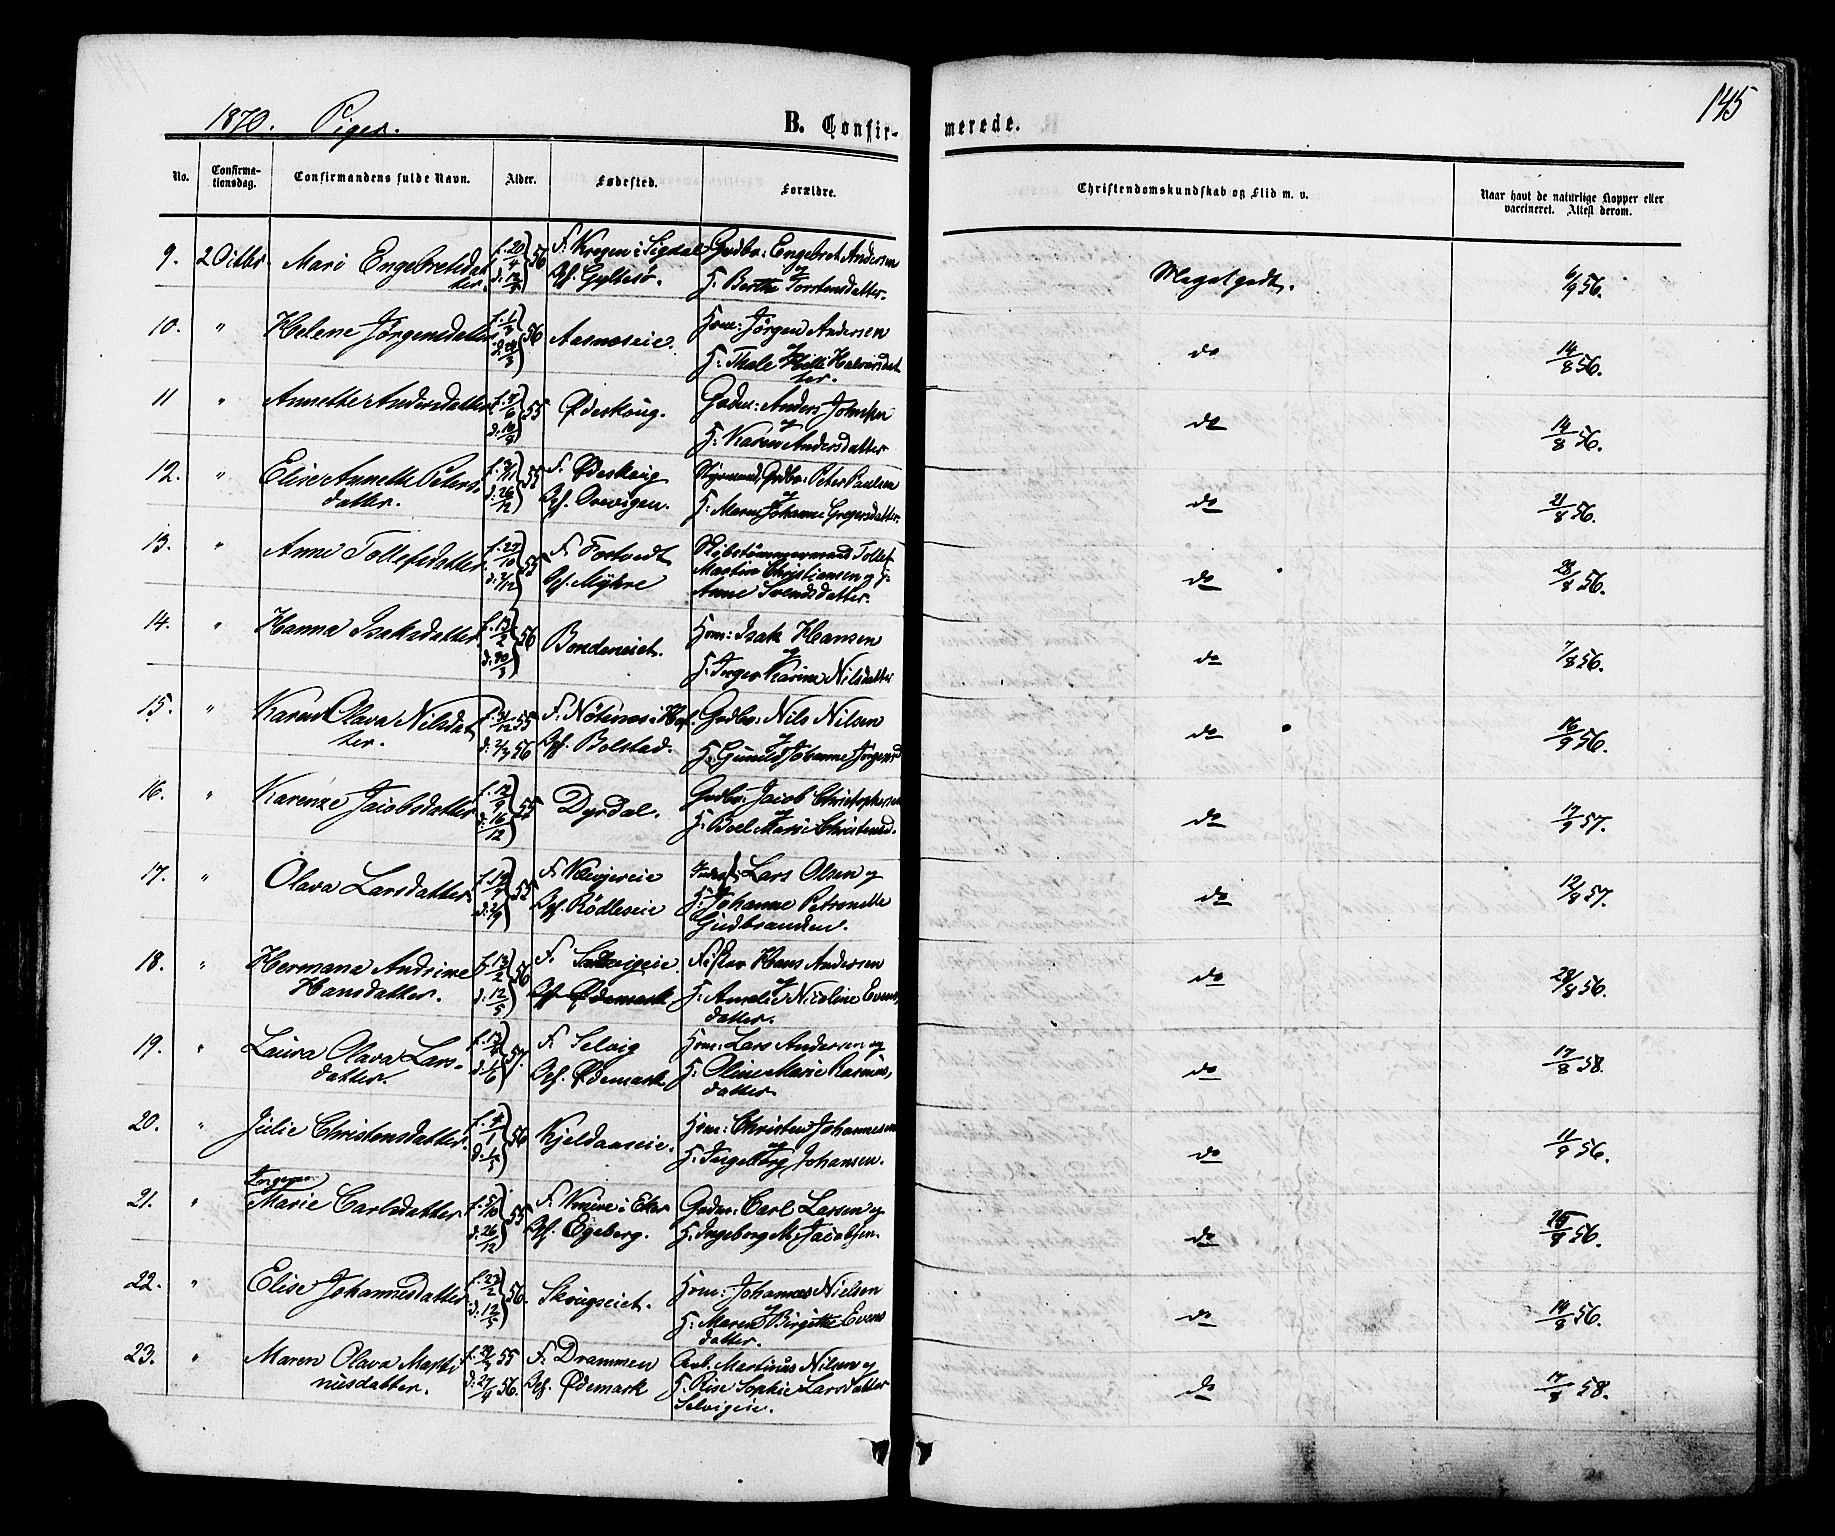 145
1870. Piger.
B. Confir-
merede.
No.
Confirma-
tionsdag.
Confirmandens fulde Navn.
Alder.
Fødested.
Forældre.
Christendomskundskab og Flid m. v.
Naar havt de naturlige Kopper eller
vaccineret. Attest derom.
9. 2 Octbr. Mari Engebretsdat
ter. f. 20/4 56 F. Krogen i Sigdal
Bf. Gyltesø. Gudbr: Engebret Andersen
og
H. Berthe Torstensdatter. Meget godt. 6/9 56.
10. " Helene Jørgensdatter f. 1/3 56 Aasnæseie. Huus: Jørgen Andersen
og
H: Thale Helle Halvorsdat
ter. do 14/8 56.
11 " Annette Andersdatter 55 Ødeskoug. Gadm: Anders Johnsen
og
H: Karen Andersdatter do 14/8 56.
12. " Elise Annette Peters
datter. d. 26/12 55 F. Ødeskoug
Bf. Orevigen. Styrmand, Gdbr: Peter Paulsen
og
H: Maren Johanne Gregersdatter. do 21/8 56.
13. " Anne Tollefsdatter f. 29/10 d. 2/12 55 F. Fostvedt
Bf. Myhre Skibstømmermand Tollef
Martin Christiansen og H:
Anne Svendsdatter. do 28/8 56.
14. " Hanna Isaksdatter f. 13/2 d. 30/3 56 Bondeneiet. Huus: Isak Hansen
og
H: Inger Karine Nilsdatter do 7/8 56.
15. " Karen Olava Nilsdat
ter. f. 31/12 55
d. 2/3 56 F. Nøtenæs i Hof.
Bf. Bolstad. Gudbr: Nils Nilsen
og
H. Gunild Johanne Jørgensd do 16/9 56.
16. " Karenze Jacobsdatter f. 12/9 d. 16/12 55 Dyrdal. Gudbr: Jacob Christophersen
og
H. Boel Marie Christensd. do 17/9 57.
17. " Olava Larsdatter. 55 F. Klevjereie
Bf. Rødleseie Lars Olsen og
H. Johanne Petronelle
Gudbrandsen. do 12/9 57.
18. " Hermana Andrine
Hansdatter. f. 13/2 d. 12/5 56 F. Selvigeie.
Bf. Ødemark Fisker Hans Andersen
og
H: Amalie Nicoline Evens
datter. do 28/8 56.
19. " Laura Olava Lars-
datter. d. 1/6 57. F. Selvig
Bf. Ødemark Huus: Lars Andersen og
H. Oline Marie Rasmus,
datter. do 17/8 58.
20. " Julie Christensdatter. d. 1/5 56 Kjeldaaseie. Huus: Christen Johannesen
og
H. Ingeborg Johansen. do 11/9 56.
21. " Marie Carlsdatter f. 5/10 d. 26/12 55 F. Knive i Eker
Bf. Egeberg. Gudm: Carl Larsen og
H. Ingeborg M. Jacobsen. do 56.
22. " Elise Johannesdatter f. 22/2 d. 12/5 56. Skougseiet. Huus: Johannes Nielsen
og
H. Maren Birgitte Evens
datter. do 14/8 56.
23. " Maren Olava Marti
nusdatter. 55
d. 27/4 56. F. Drammen
Bf. Ødemark Arb. Martinus Nilsen og
H. Rise Sophie Larsdatter
Selvigeie. do 17/8 58.